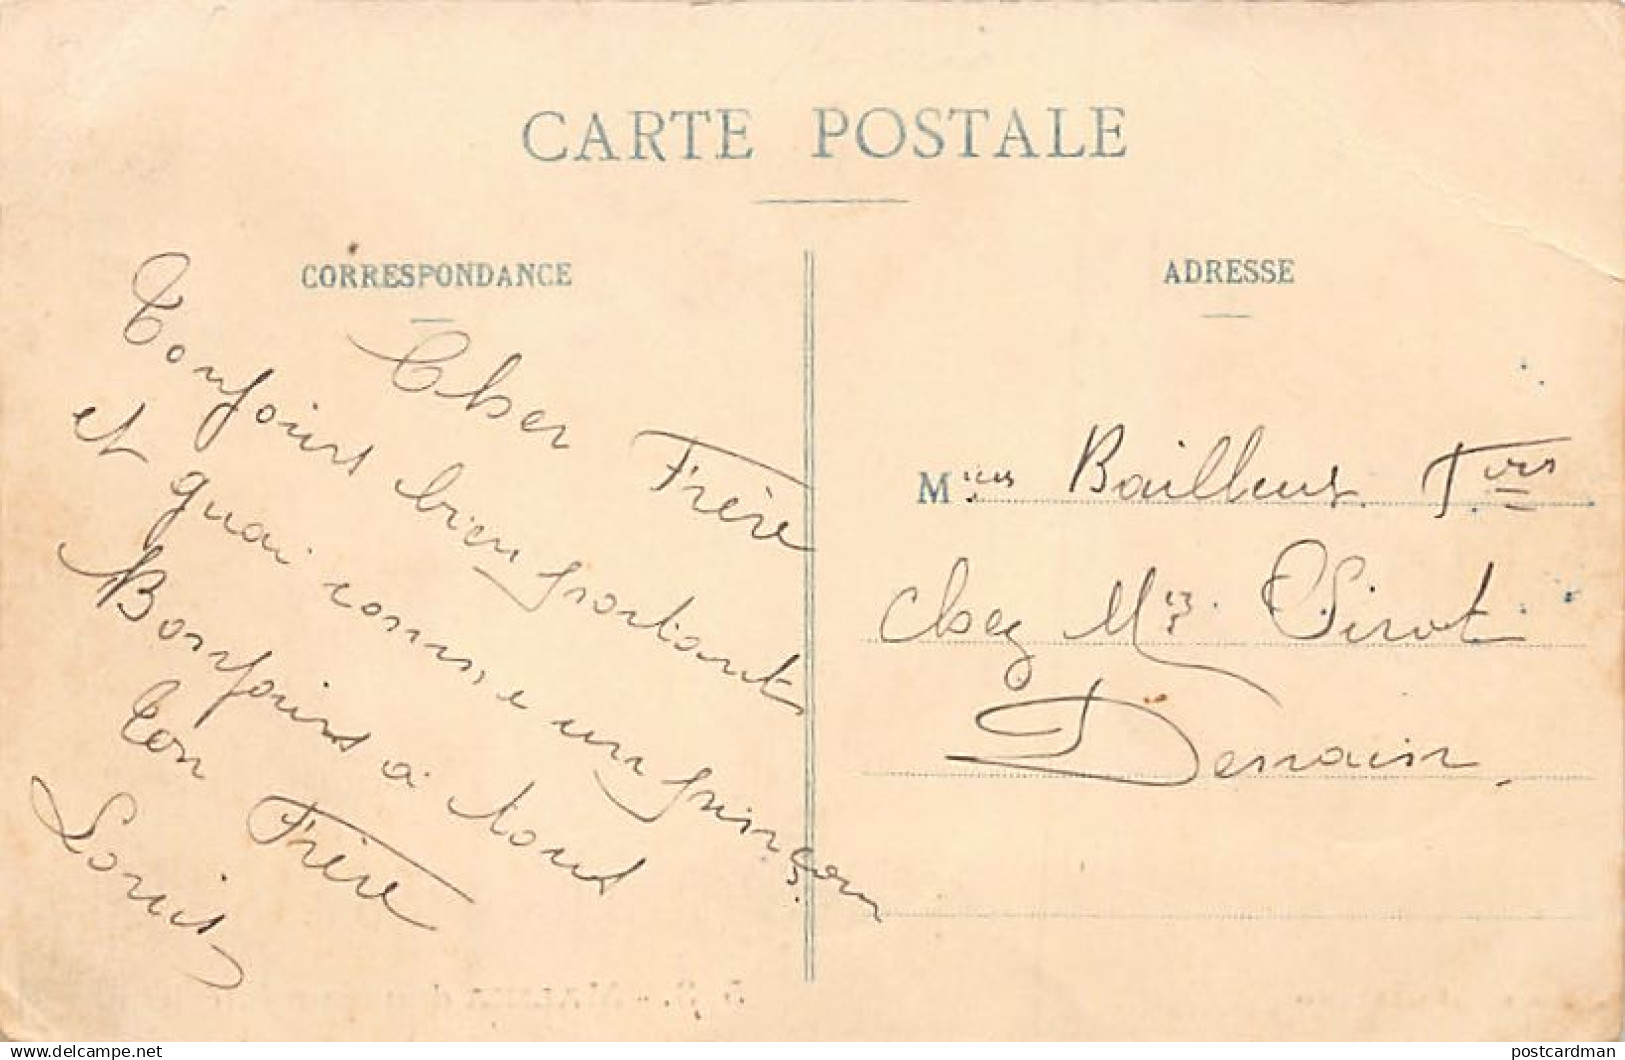 CARTE POSTALE
CORRESPONDANCE
Cher Frère
Toujours bien portant
et quoi comme un pinçon
Bonjours à tout
Ton Frère
Louis
ADRESSE
Mieurs Bailleus Frs
chez Mr Sirot
Denain
www.delcampe.net
postcardman